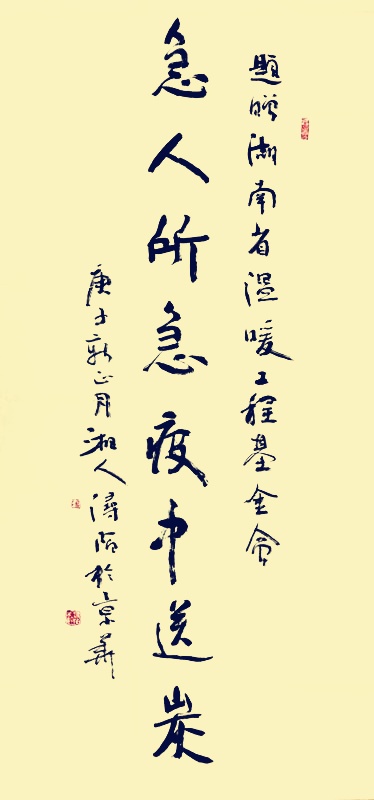 题赠湖南省温暖工程基金会
急人所急疫中送炭
庚子新正月湘人浔阳於京华